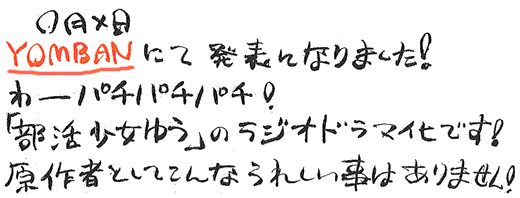 〇月×日
YOMBANにて発表になりました!
わーパチパチパチ!
「部活少女ゆう」のラジオドラマ化です!
原作者としてこんなうれしい事はありません!